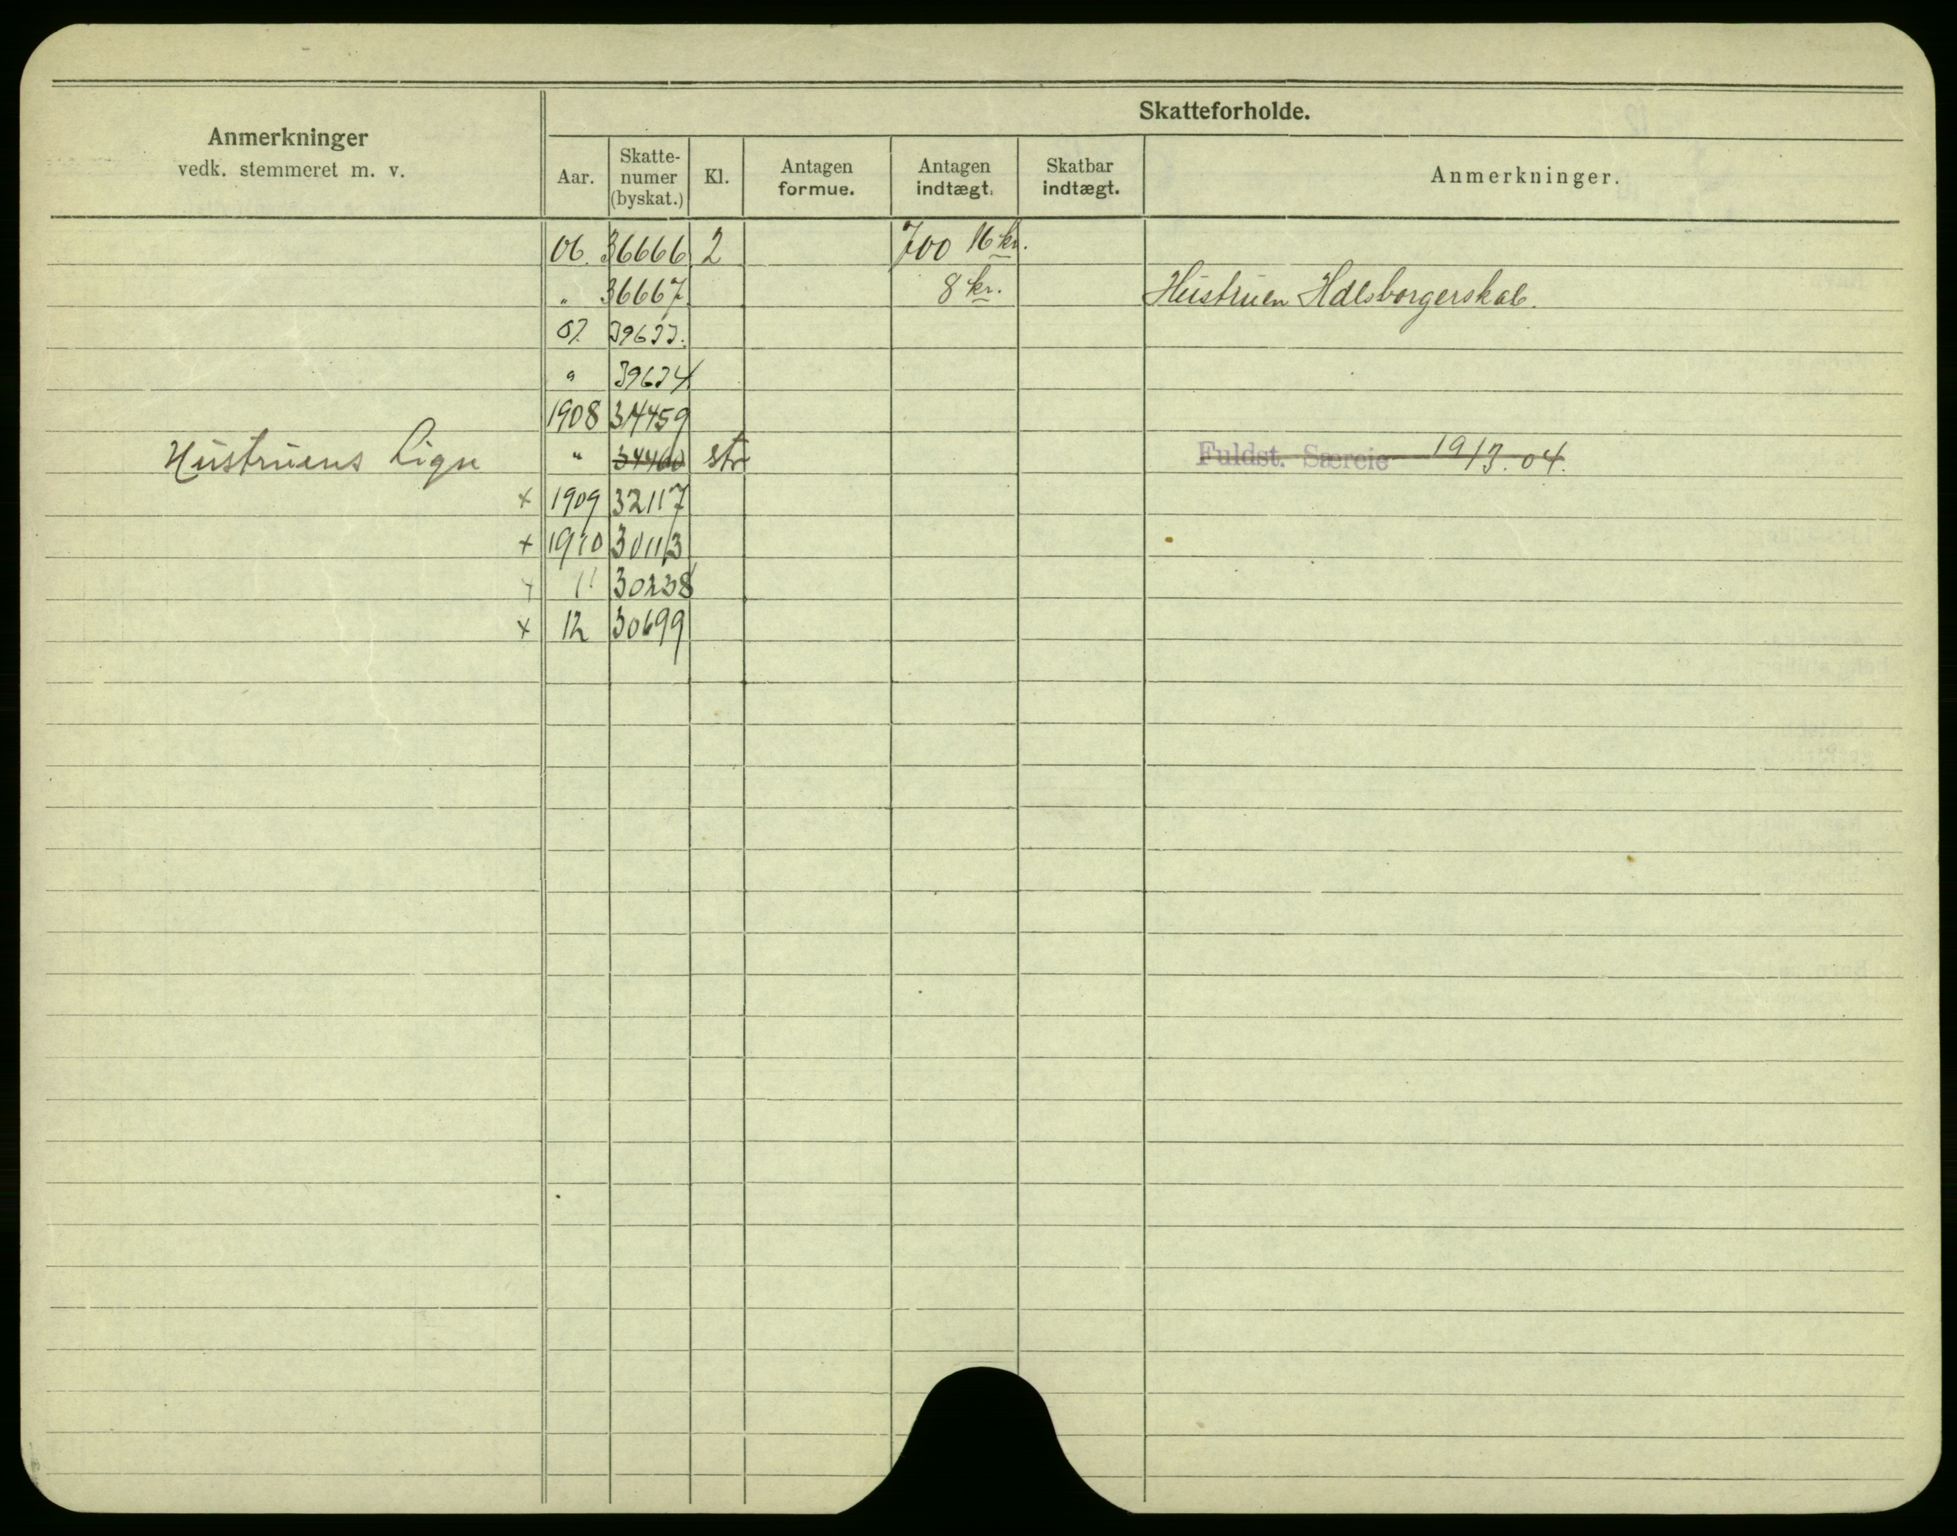 Skatteforholde.
Anmerkninger
vedk. stemmeret m. v.
Aar. Skatte-numer (byskat.) Kl. Antagen formue. Antagen indtægt. Skatbar indtægt. Anmerkninger.
06. 36666 2 700 16 kr.
" 36667 8 kr. Hustruen Hdlsborgerskab.
07. 39633.
" 39634
1908 34459
Hustruens Lign " 34460 str Fuldst. Særeie 19/3. 04.
x 1909 32117
x 1910 30113
x 11 30238
x 12 30699